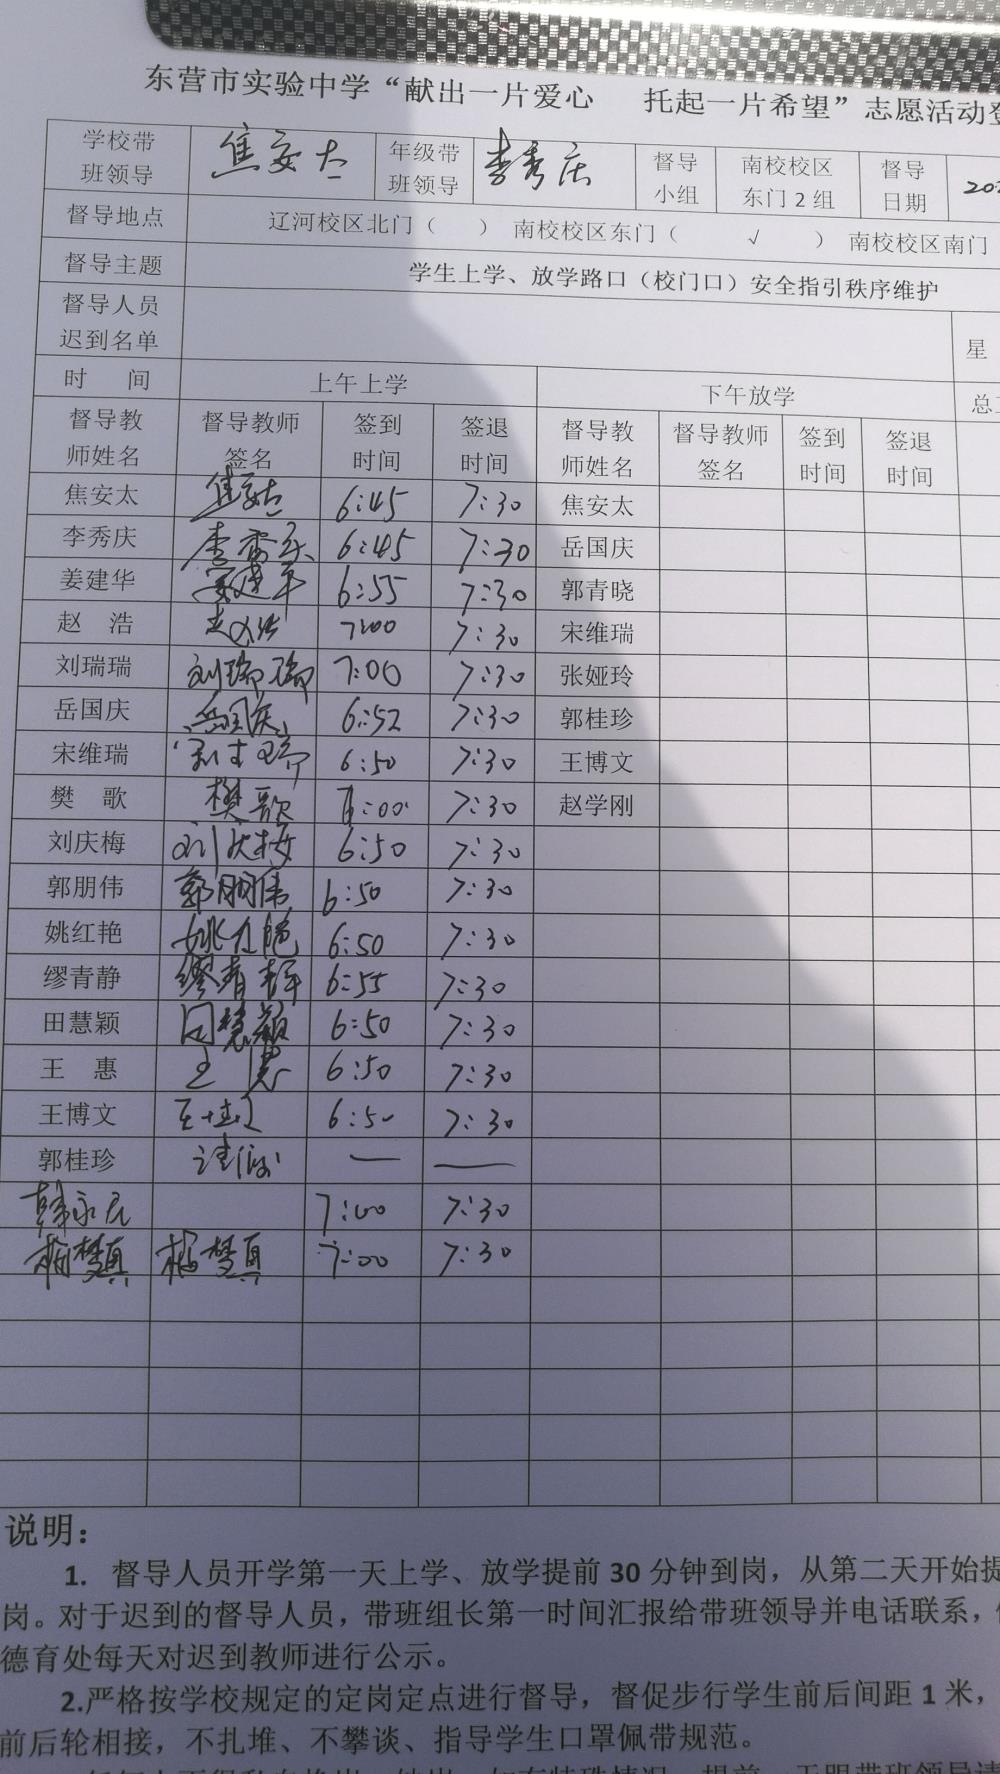 东营市实验中学“献出一片爱心 托起一片希望”志愿活动登
学校带班领导 焦安太 年级带班领导 李秀庆 督导小组 南校校区东门2组 督导日期
督导地点 辽河校区北门（ ） 南校校区东门（ √ ） 南校校区南门
督导主题 学生上学、放学路口（校门口）安全指引秩序维护
督导人员迟到名单 星
时 间 上午上学 下午放学 总
督导教师姓名 督导教师签名 签到时间 签退时间 督导教师姓名 督导教师签名 签到时间 签退时间
焦安太 焦安太 6:45 7:30 焦安太
李秀庆 李秀庆 6:45 7:30 岳国庆
姜建华 姜建华 6:55 7:30 郭青晓
赵 浩 赵浩 7:00 7:30 宋维瑞
刘瑞瑞 刘瑞瑞 7:00 7:30 张娅玲
岳国庆 岳国庆 6:52 7:30 郭桂珍
宋维瑞 宋维瑞 6:50 7:30 王博文
樊 歌 樊歌 7:00 7:30 赵学刚
刘庆梅 刘庆梅 6:50 7:30
郭朋伟 郭朋伟 6:50 7:30
姚红艳 姚红艳 6:50 7:30
缪青静 缪青静 6:55 7:30
田慧颖 田慧颖 6:50 7:30
王 惠 王惠 6:50 7:30
王博文 王博文 6:50 7:30
郭桂珍 请假 — —
7:00 7:30
杨梦真 杨梦真 7:00 7:30
说明：
1. 督导人员开学第一天上学、放学提前30分钟到岗，从第二天开始提
岗。对于迟到的督导人员，带班组长第一时间汇报给带班领导并电话联系，
德育处每天对迟到教师进行公示。
2.严格按学校规定的定岗定点进行督导，督促步行学生前后间距1米，
前后轮相接，不扎堆、不攀谈、指导学生口罩佩带规范。